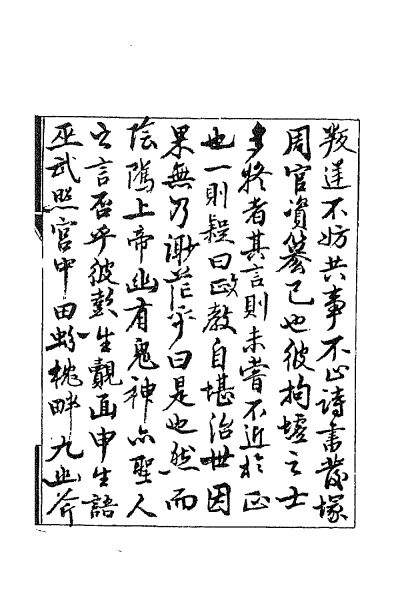 叛逹不妨共事不止詩書發塚
周官資篡已也彼拘墟之士
多疑者其言則未嘗不近於正
也一則疑曰政教自堪治世因
果無乃渺茫乎曰是也然而
陰隲上帝幽有鬼神亦聖人
之言否乎彼彭生覿面申生語
巫武照宮中田蚡枕畔九幽斧